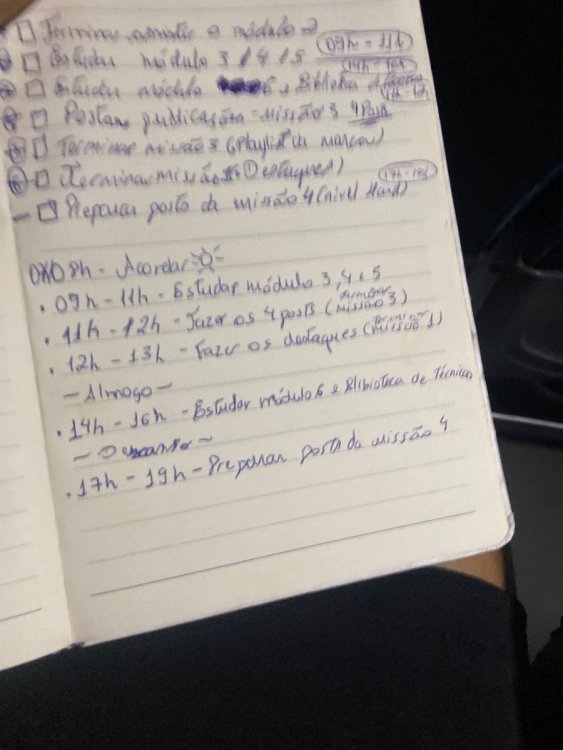 Terminar o módulo 2
Estudar módulo 3, 4, 5 09h - 11h
Estudar módulo 6 e Biblioteca de 14h - 16h
Postar publicações - Missão 3 4 Posts
Terminar missão 3 (playlist da marca)
Terminar missão 1 (Destaques)
Preparar post da missão 4 (nível Hard) 17h - 19h
08h - Acordar
. 09h - 11h - Estudar módulo 3, 4, 5
. 11h - 12h - Fazer os 4 posts (terminar missão 3)
. 12h - 13h - Fazer os destaques (terminar missão 1)
- Almoço -
. 14h - 16h - Estudar módulo 6 e Blibioteca de Técnicas
~ Descanso ~
. 17h - 19h - Preparar post da missão 4